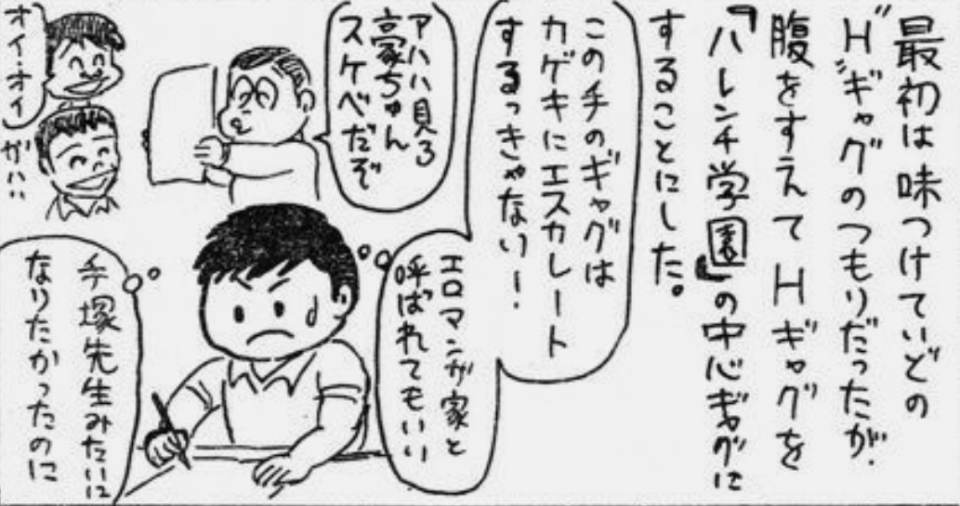 最初は味つけていどの
"H"ギャグのつもりだったが、
腹をすえてHギャグを
『ハレンチ学園』の中心ギャグに
することにした。
このチのギャグは
カゲキにエスカレート
するっきゃない!
アハハ見ろ
豪ちゃん
スケベだぞ
オイ・オイ
ガハハ
エロマンガ家と
呼ばれてもいい
手塚先生みたいに
なりたかったのに